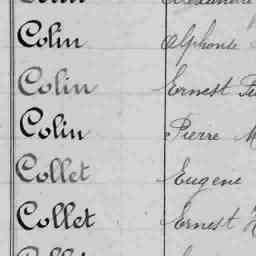 Colin Alphonse
Colin Ernest
Colin Pierre
Collet Eugene
Collet Ernest